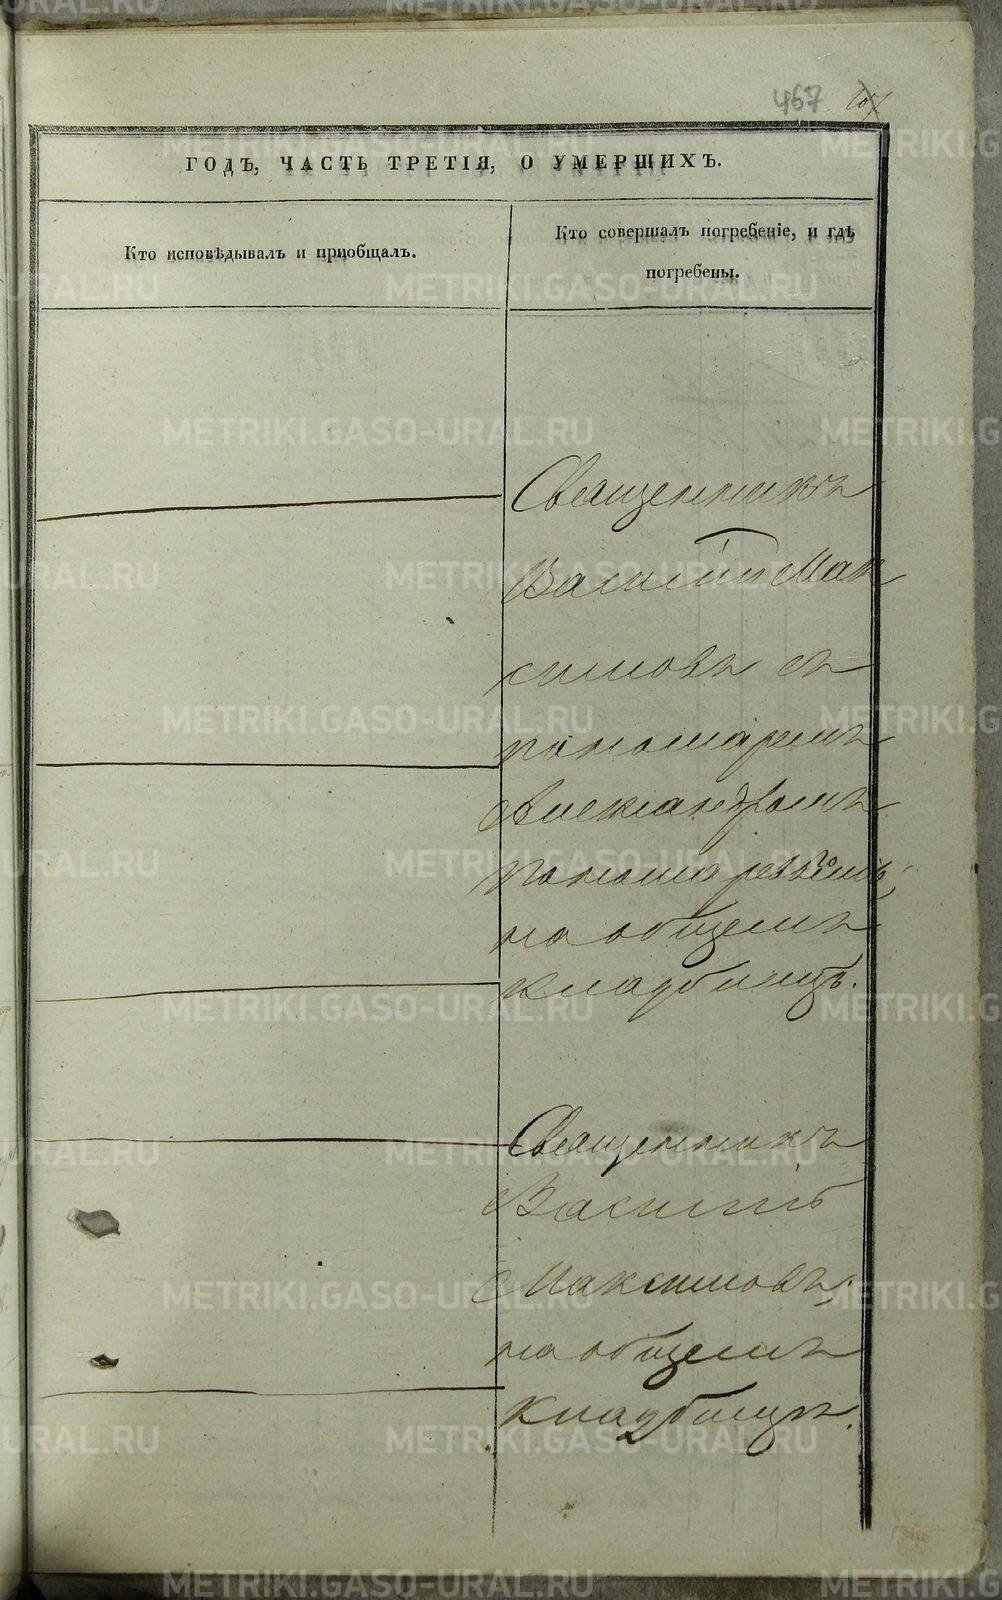 467
ГОДЪ, ЧАСТЬ ТРЕТІЯ, О УМЕРШИХЪ.
Кто исповѣдывалъ и пріобщалъ.
Кто совершалъ погребеніе, и гдѣ
погребены.
Священникъ
Василій Мак
симовъ съ
пономаремъ
Александромъ
Пономаревымъ,
на общемъ
кладбищѣ.
Священникъ
Василій
Максимовъ,
на общемъ
кладбищѣ.
METRIKI.GASO-URAL.RU